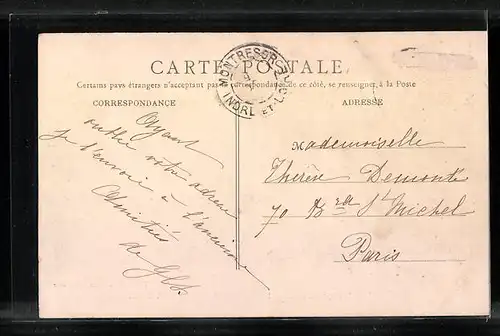 CARTE POSTALE
MONTRESOR
INDRE-ET-L
Certains pays étrangers n'acceptant pas de correspondance de ce côté, se renseigner à la Poste
CORRESPONDANCE
ADRESSE
Ayant
oublié votre adresse
je l'envoie à l'ancienne
Amitiés
de
Mademoiselle
Thérèse Demonte
70 Brd St Michel
Paris